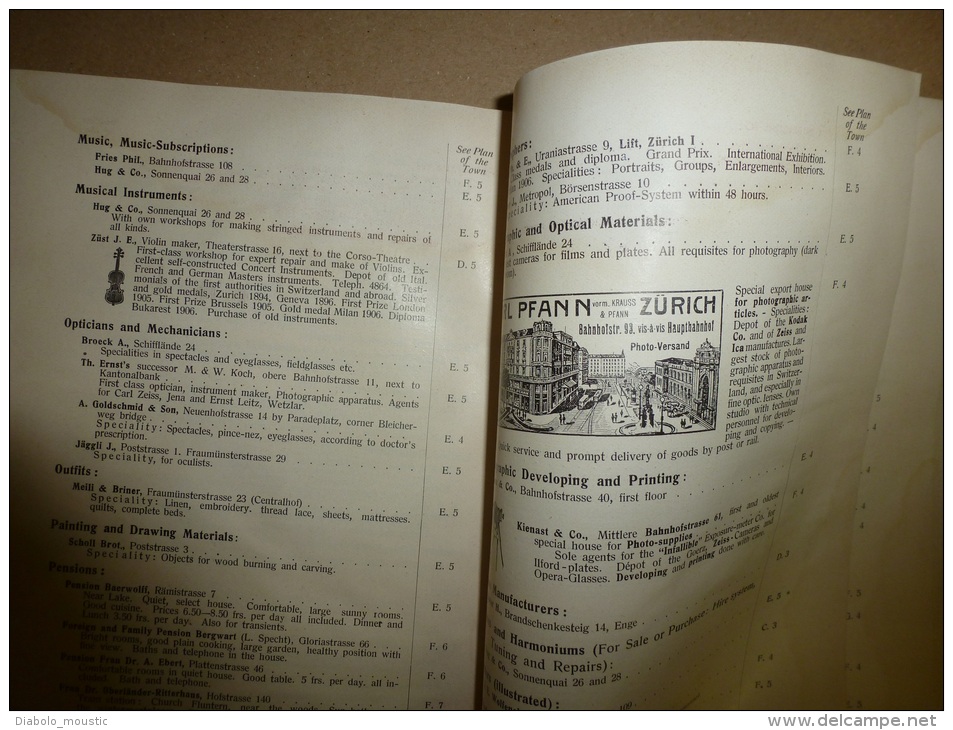 See Plan
of the
Town
Music, Music-Subscriptions:
Fries Phil., Bahnhofstrasse 108 F. 5
Hug & Co., Sonnenquai 26 and 28 E. 5
Musical Instruments:
Hug & Co., Sonnenquai 26 and 28 E. 5
With own workshops for making stringed instruments and repairs of
all kinds.
Züst J. E., Violin maker, Theaterstrasse 16, next to the Corso-Theatre D. 5
First-class workshop for expert repair and make of Violins. Ex-
cellent self-constructed Concert Instruments. Depot of old Ital.
French and German Masters instruments. Teleph. 4864. Testi-
monials of the first authorities in Switzerland and abroad. Silver
and gold medals, Zurich 1894, Geneva 1896. First Prize London
1905. First Prize Brussels 1905. Gold medal Milan 1906. Diploma
Bukarest 1906. Purchase of old instruments.
Opticians and Mechanicians:
Broeck A., Schifflände 24 E. 5
Specialities in spectacles and eyeglasses, fieldglasses etc.
Th. Ernst's successor M. & W. Koch, obere Bahnhofstrasse 11, next to
Kantonalbank E. 5
First class optician, instrument maker, Photographic apparatus. Agents
for Carl Zeiss, Jena and Ernst Leitz, Wetzlar.
A. Goldschmid & Son, Neuenhofstrasse 14 by Paradeplatz, corner Bleicher-
weg bridge E. 4
Speciality: Spectacles, pince-nez, eyeglasses, according to doctor's
prescription.
Jäggli J., Poststrasse 1. Fraumünsterstrasse 29 E. 5
Speciality, for oculists.
Outfits:
Meili & Briner, Fraumünsterstrasse 23 (Centralhof) E. 5
Speciality: Linen, embroidery. thread lace, sheets, mattresses.
quilts, complete beds.
Painting and Drawing Materials:
Scholl Brot., Poststrasse 3 E. 5
Speciality: Objects for wood burning and carving.
Pensions:
Pension Baerwolff, Rämistrasse 7 E. 5
Near Lake. Quiet, select house. Comfortable, large sunny rooms.
Good cuisine. Prices 6.50—8.50 frs. per day all included. Dinner and
Lunch 3.50 frs. per day. Also for transients.
Foreign and Family Pension Bergwart (L. Specht), Gloriastrasse 66 F. 6
Bright rooms, good plain cooking, large garden, healthy position with
fine view. Baths and telephone in the house.
Pension Frau Dr. A. Ebert, Plattenstrasse 46 F. 6
Comfortable rooms in quiet house. Good table. 5 frs. per day. all in-
cluded. Bath and telephone.
Frau Dr. Oberländer-Rittershaus, Hofstrasse 140 F. 7
Church Fluntern, near the woods
See Plan
of the
Town
& E., Uraniastrasse 9, Lift, Zürich I F. 4
medals and diploma. Grand Prix. International Exhibition.
1906. Specialities: Portraits, Groups, Enlargements, Interiors.
J., Metropol, Börsenstrasse 10 E. 5
Speciality: American Proof-System within 48 hours.
and Optical Materials:
Schifflände 24 E. 5
cameras for films and plates. All requisites for photography (dark
F. 4
PFANN vorm. KRAUSS & PFANN ZÜRICH
Bahnhofstr. 93, vis-à-vis Hauptbahnhof
Photo-Versand
Special export house
for photographic ar-
ticles. - Specialities:
Depot of the Kodak
Co. and of Zeiss and
Ica manufactures. Lar-
gest stock of photo-
graphic apparatus and
requisites in Switzer-
land, and especially in
fine optic. lenses. Own
studio with technical
personnel for develo-
ping and copying. —
service and prompt delivery of goods by post or rail.
Developing and Printing:
& Co., Bahnhofstrasse 40, first floor E. 4
Kienast & Co., Mittlere Bahnhofstrasse 61, first and oldest
special house for Photo-supplies F. 4
Sole agents for the "Infallible" Exposure-meter Co. for
Ilford-plates. Dépot of the Goerz, Zeiss-Cameras and
Opera-Glasses. Developing and printing done with care
Manufacturers: D. 3
Brandschenkesteig 14, Enge E. 3
and Harmoniums (For Sale or Purchase: Hire system,
and Repairs): C. 3
& Co., Sonnenquai 26 and 28 F. 4
(illustrated):
F. 5
Diabolo_moustic
www.delcampe.net